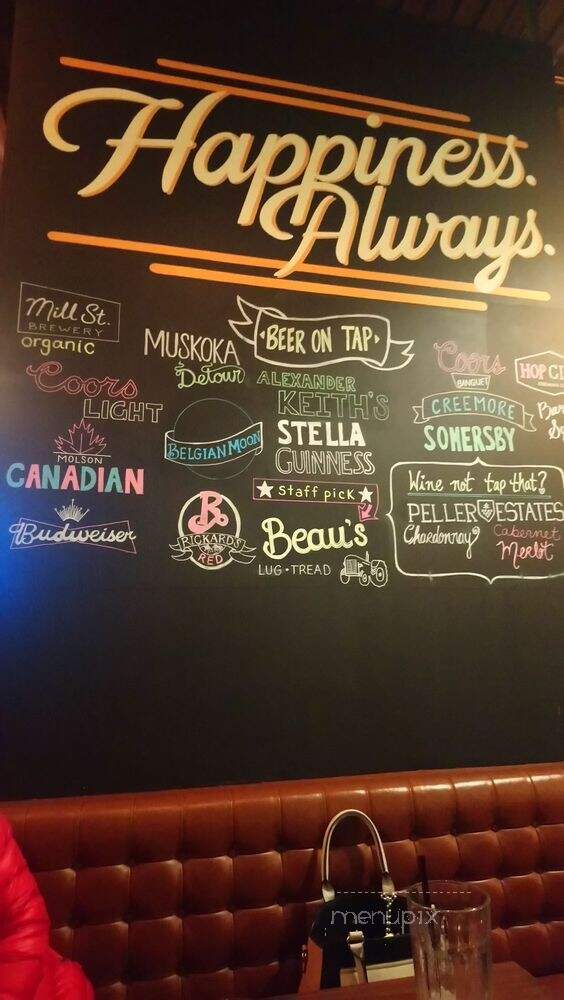 Happiness.
Always.
Mill St.
BREWERY
organic
Coors
LIGHT
MOLSON
CANADIAN
Budweiser
MUSKOKA
Detour
BELGIAN MOON
R
RICKARD'S
RED
BEER ON TAP
ALEXANDER
KEITH'S
STELLA
GUINNESS
★ Staff pick ★
Beau's
LUG • TREAD
Coors
BANQUET
CREEMORE
SOMERSBY
HOP
Wine not tap that?
PELLER ESTATES
Chardonnay
Cabernet
Merlot
menupix